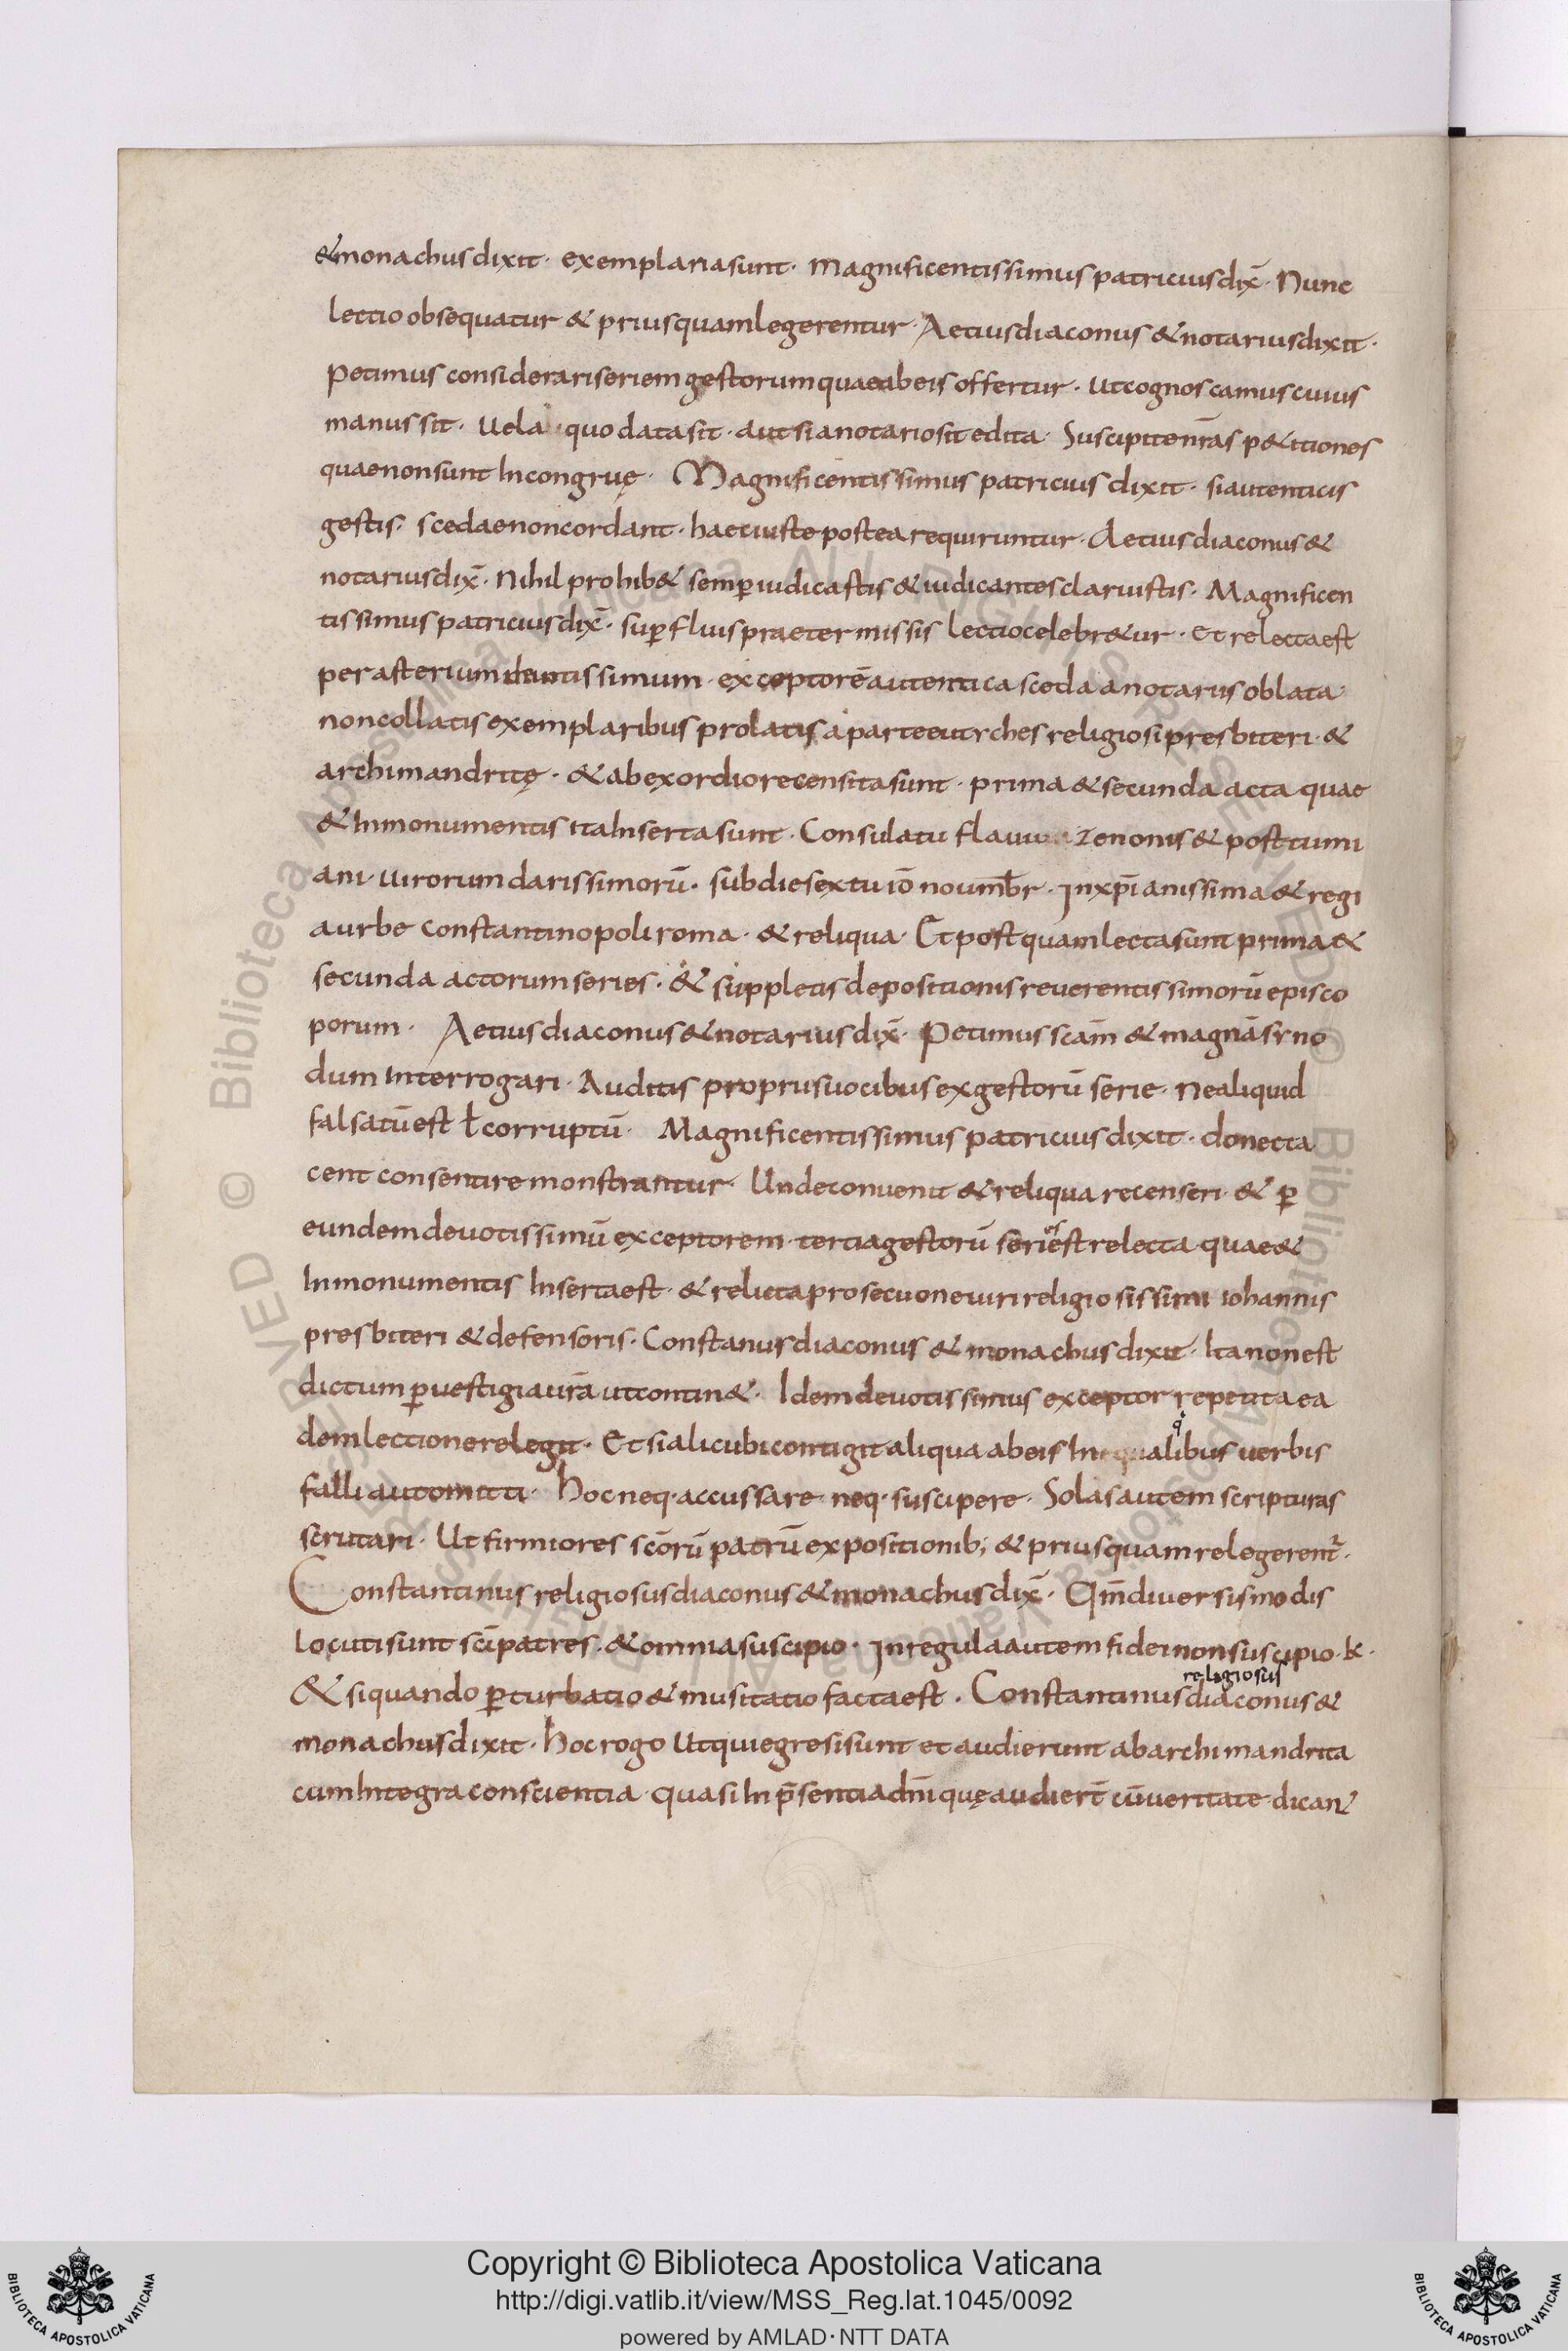 & monachus dixit · exemplaria sunt · magnificentissimus patricius dix̄ · Nunc
lectio obsequatur & priusquam legerentur · Aetius diaconus & notarius dixit ·
Petimus considerari seriem gestorum quae ab eis offertur · ut cognoscamus cuius
manus sit · uel a quo data sit · aut si a notario sit edita · Suscipite nr̄as p&itiones
quae non sunt Incongruę · Magnificentissimus patricius dixit · si autenticis
gestis · scedae non cordant · haec iuste postea requiruntur · Aetius diaconus &
notarius dix̄ · Nihil prohib& semp̱ iudicastis & iudicantes claruistis · Magnificen
tissimus patricius dix̄ · sup̱fluis praetermissis lectio celebr&ur · et relecta est
per asterium exceptorē autentica sceda a notariis oblata ·
non collatis exemplaribus prolatis a parte eutyches religiosi presbiteri · &
archimandritę · & ab exordio recensita sunt · prima & secunda acta quae
& In monumentis ita Inserta sunt · Consulatu flauii zenonis & posttumi
ani · uirorum clarissimorū · sub die sextu iō nouemb̄r · In xp̄ianissima & regi
a urbe constantinopoli roma · & reliqua · Et postquam lecta sunt prima &
secunda actorum series · & suppletis depositionis reuerentissimorū episco
porum · Aetius diaconus & notarius dix̄ · Petimus scām & magnā syno
dum Interrogari · Auditis propriis uocibus ex gestorū serie · ne aliquid
falsatū est ł corruptū · Magnificentissimus patricius dixit · donec ta
cent consentire monstrantur · Unde conuenit & reliqua recenseri · & p̱
eundem deuotissimū exceptorem · tertia gestorū series est relecta quae &
In monumentis Inserta est · & relicta prosecuone uiri religiosissimi iohannis
presbiteri & defensoris · Constanus diaconus & monachus dixit · Ita non est
dictum p̱ uestigia ur̄a ut contin& · Idem deuotissimus exceptor repetita ea
dem lectione relegit · Et si alicubi contigit aliqua ab eis In qualibus uerbis
falli aut omitti · Hoc neq· accussare neq· suscipere · Solas autem scripturas
scrutari · Ut firmiores scōrū patrū expositionib; & priusquam relegerent̄ ·
Constantinus religiosus diaconus & monachus dix̄ · Qm̄ diuersis modis
locuti sunt scī patres · & omnia suscipio · In regula autem fidei non suscipio · k ·
& si quando p̱turbatio & musitatio facta est · Constantinus religiosus diaconus &
monachus dixit · Hoc rogo ut qui egresi sunt et audierunt ab archimandrita
cum Integra conscientia · quasi In p̄sentia dn̄i quę audiert̄ cū ueritate dicant
Copyright © Biblioteca Apostolica Vaticana
http://digi.vatlib.it/view/MSS_Reg.lat.1045/0092
powered by AMLAD·NTT DATA
BIBLIOTECA APOSTOLICA VATICANA
BIBLIOTECA APOSTOLICA VATICANA